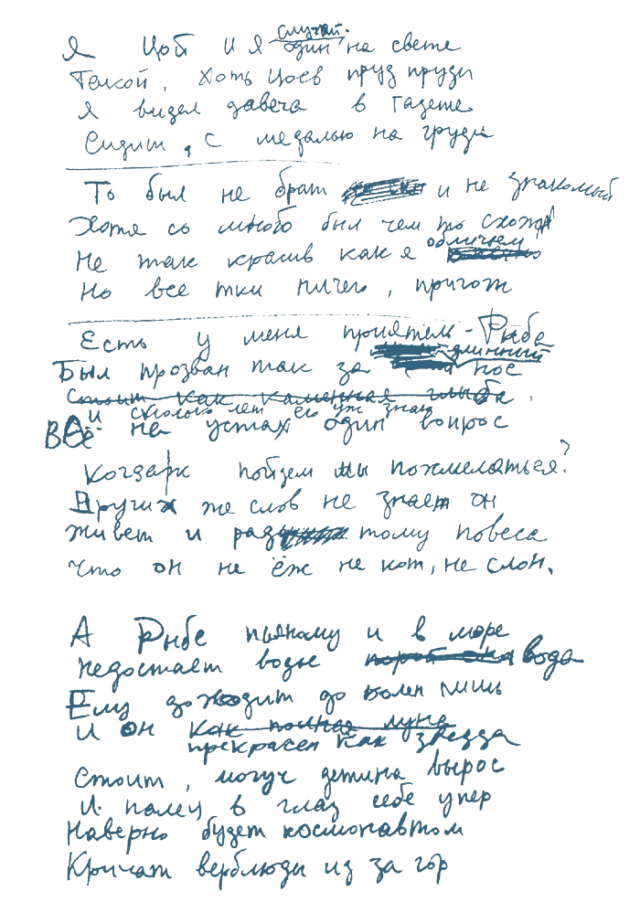 Я Цой и я случай. один на свете
Такой, Хоть Цоев пруд пруди
Я видел давеча в газете
Сидит, с медалью на груди
То был не брат и не знакомый
Хотя со мною был чем то схож
Не так красив как я обличьем
Но все тки ничего, пригож
Есть у меня приятель - Рыба
Был прозван так за длинный нос
Стоит как каменная глыба
и сколько лет его уж знаю
Всё на устах один вопрос
Когда рк пойдем мы похмеляться?
Других же слов не знает он
живет и рад тому повеса
что он не ёж не кот, не слон.
А Рыбе пьяному и в море
недостает воды вода
Ему доходит до колен лишь
и он как полная луна
прекрасен как звезда
Стоит, могуч детина вырос
И палец в глаз себе упер
Наверно будет космонавтом
Кричат верблюды из за гор